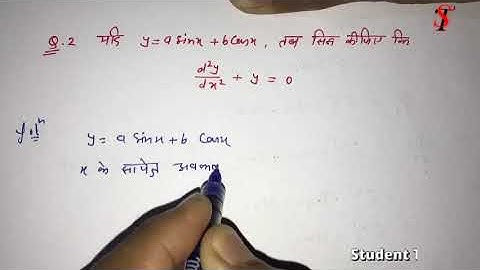 Q.2 यदि y = a sinx + b cosx, तब सिद्ध कीजिए कि
d²y/dx² + y = 0
Solⁿ y = a sinx + b cosx
x के सापेक्ष अवकल
Student 1
ST